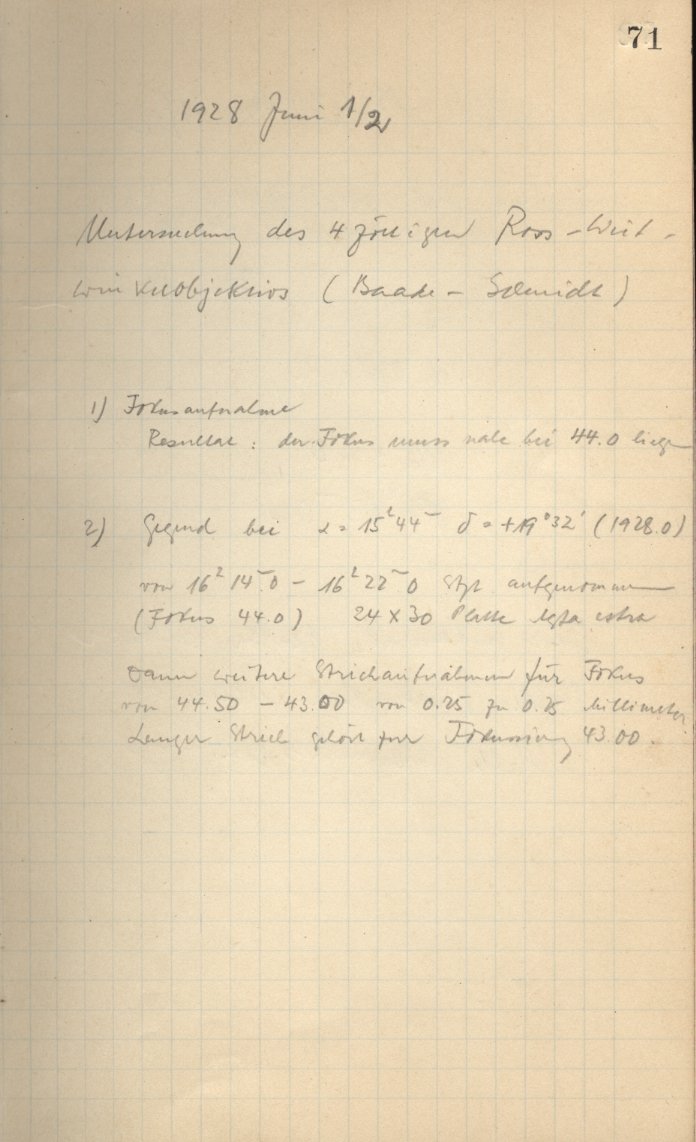 71
1928 Juni 1/2
Untersuchung des 4 zölligen Ross-Weit-
winkelobjektivs (Baade - Schmidt)
1) Fokusaufnahme
Resultat: der Fokus muss nahe bei 44.0 liegen
2) Gegend bei α = 15ʰ44ᵐ δ = +19°32' (1928.0)
von 16ʰ14ᵐ0 - 16ʰ22ᵐ0 aufgenommen
(Fokus 44.0) 24 X 30 Platte Agfa extra
Dann weitere Strichaufnahmen für Fokus
von 44.50 - 43.00 von 0.25 zu 0.25 Millimeter
Langer Strich gehört zur Fokussierung 43.00.